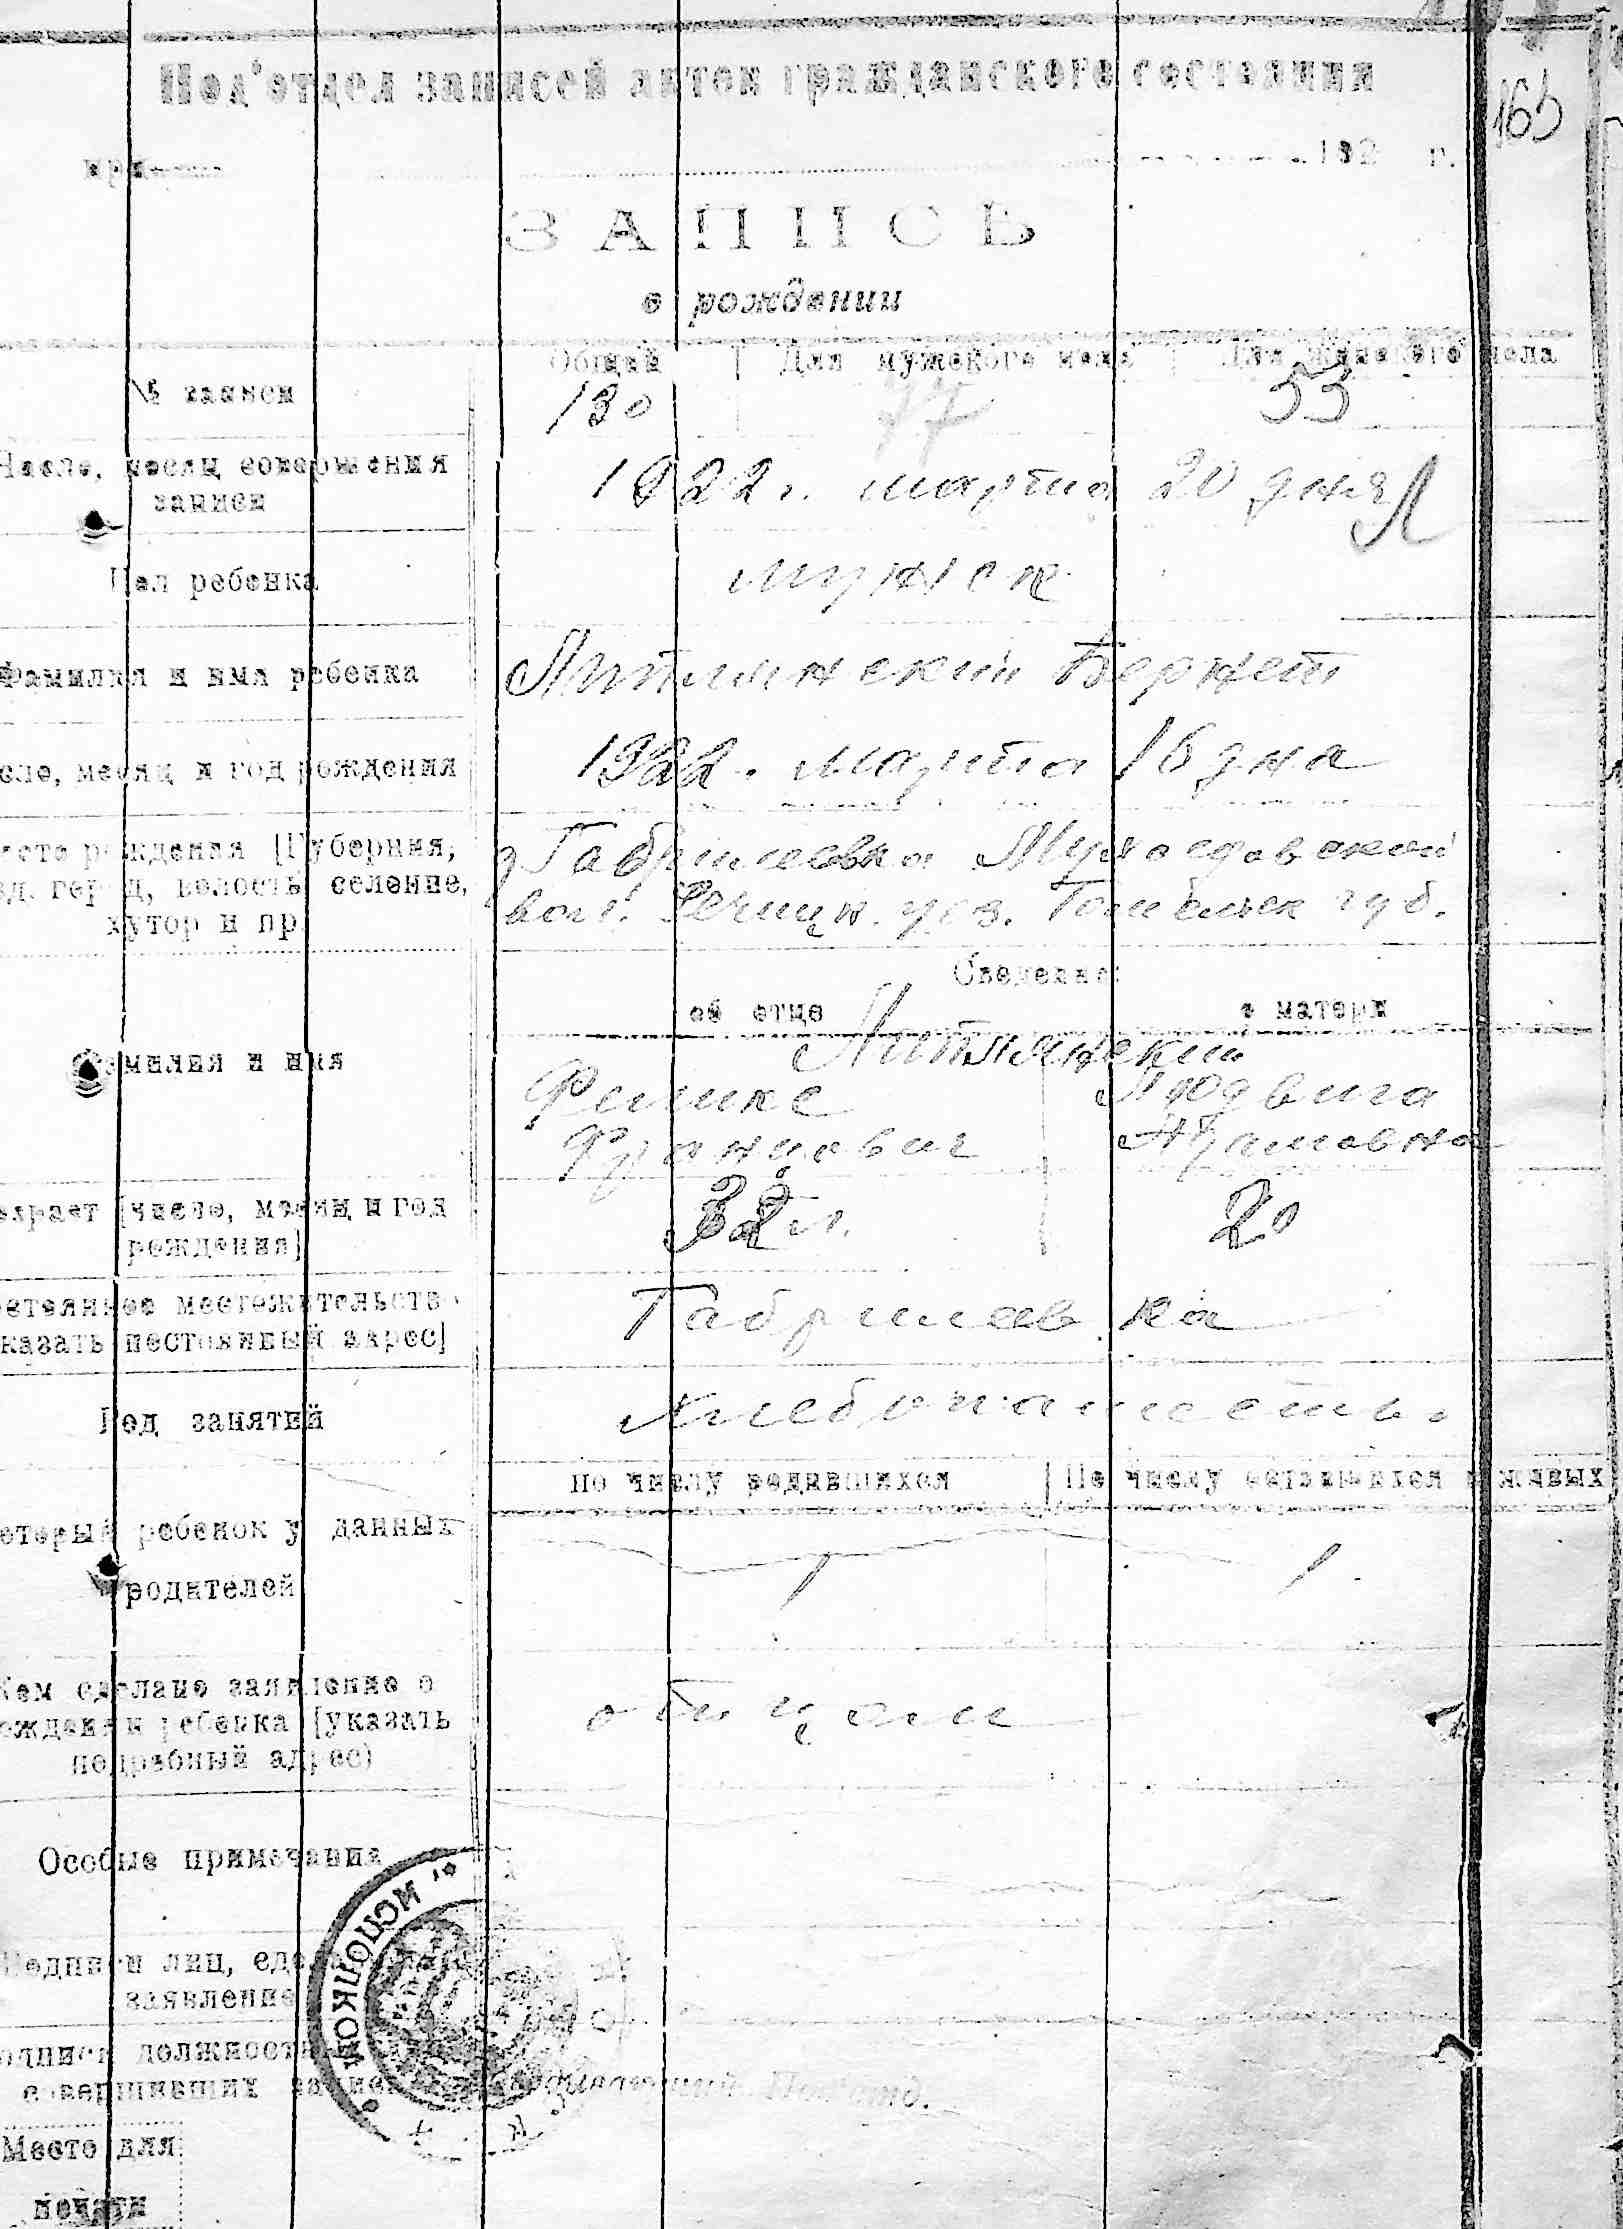 165
Под'отдел записей актов гражданского состояния
при 192 г.
ЗАПИСЬ
о рождении
Общий Для мужского пола Для женского пола
№ записи 130 77 53
Число, месяц совершения 1922 г. марта 20 дня
записи
Пол ребенка мужск
Фамилия и имя ребенка
число, месяц и год рождения 1922. марта 16 дня
место рождения [Губерния, Габрилеевка
уезд, город, волость, селение, вол. Речицк. уез. Гомельск губ.
хутор и пр.
Сведения:
об отце о матери
Фамилия и имя
Людвига
Францович Адамовна
Возраст [число, месяц и год 32 л. 20
рождения]
Постоянное местожительство Габрилеевка
[указать постоянный адрес]
Род занятий хлебопашество
по числу родившихся По числу оставшихся в живых
Который ребенок у данных
родителей 1 1.
Кем сделано заявление о
рождении ребенка [указать отцом
подробный адрес)
Особые примечания
ИСПОЛКОМ
Подписи лиц, сделавших
заявление
Подписи должностных лиц
совершивших запись
Место для
печати